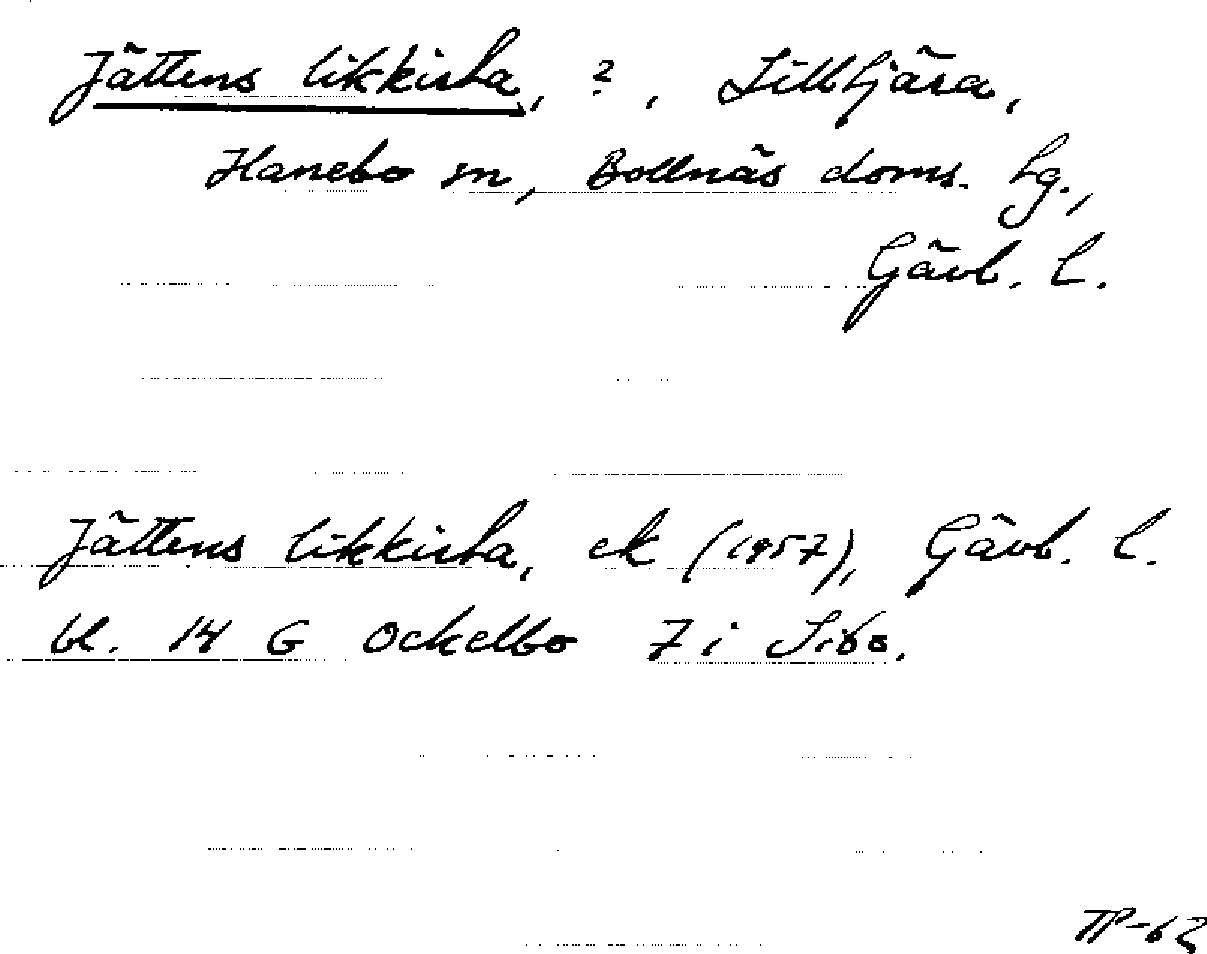 Jättens likkista, ?, Lilltjära,
Hanebo sn, Bollnäs doms. lg.,
Gävl. l.
Jättens likkista, ek (1957), Gävl. l.
bl. 14 G Ockelbo 7 i Sibo.
TP-62